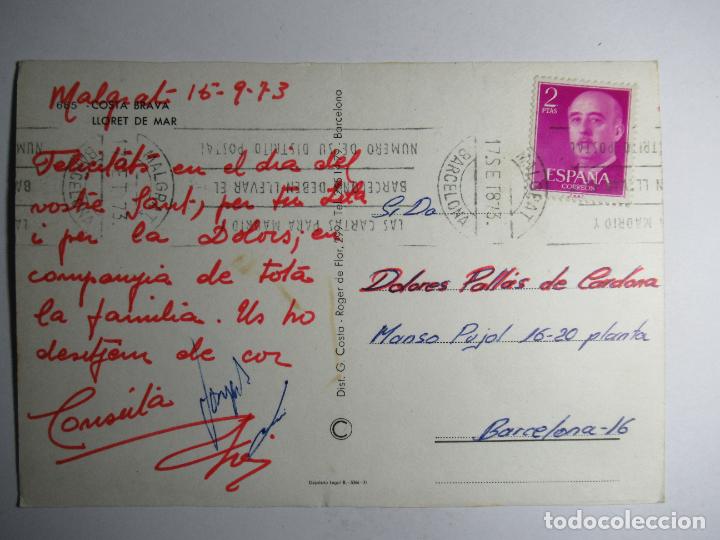 Malgrat 15-9-73
665 - COSTA BRAVA
LLORET DE MAR
Felicitats en el dia del
vostre Sant, per tu
i per la Dolors, en
companyia de tota
la familia. Us ho
desitjem de cor
Consuelo
Dist. G. Costa - Roger de Flor, 299 - Barcelona
Depósito Legal B.
2
PTAS
ESPAÑA
CORREOS
MALGRAT
BARCELONA
17 SET 8 73
LAS CARTAS PARA MADRID Y
BARCELONA DEBEN LLEVAR EL
NUMERO DE SU DISTRITO POSTAL
Sr. Da
Dolores Pallás de Cardona
Manso Pujol 16-20 planta
Barcelona-16
todocoleccion.net